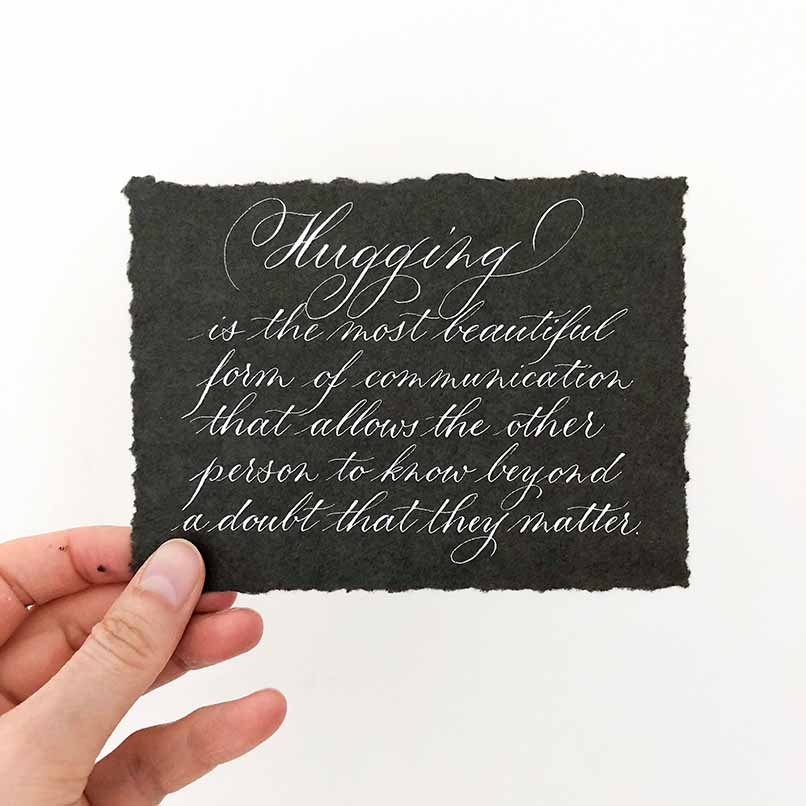 Hugging
is the most beautiful
form of communication
that allows the other
person to know beyond
a doubt that they matter.